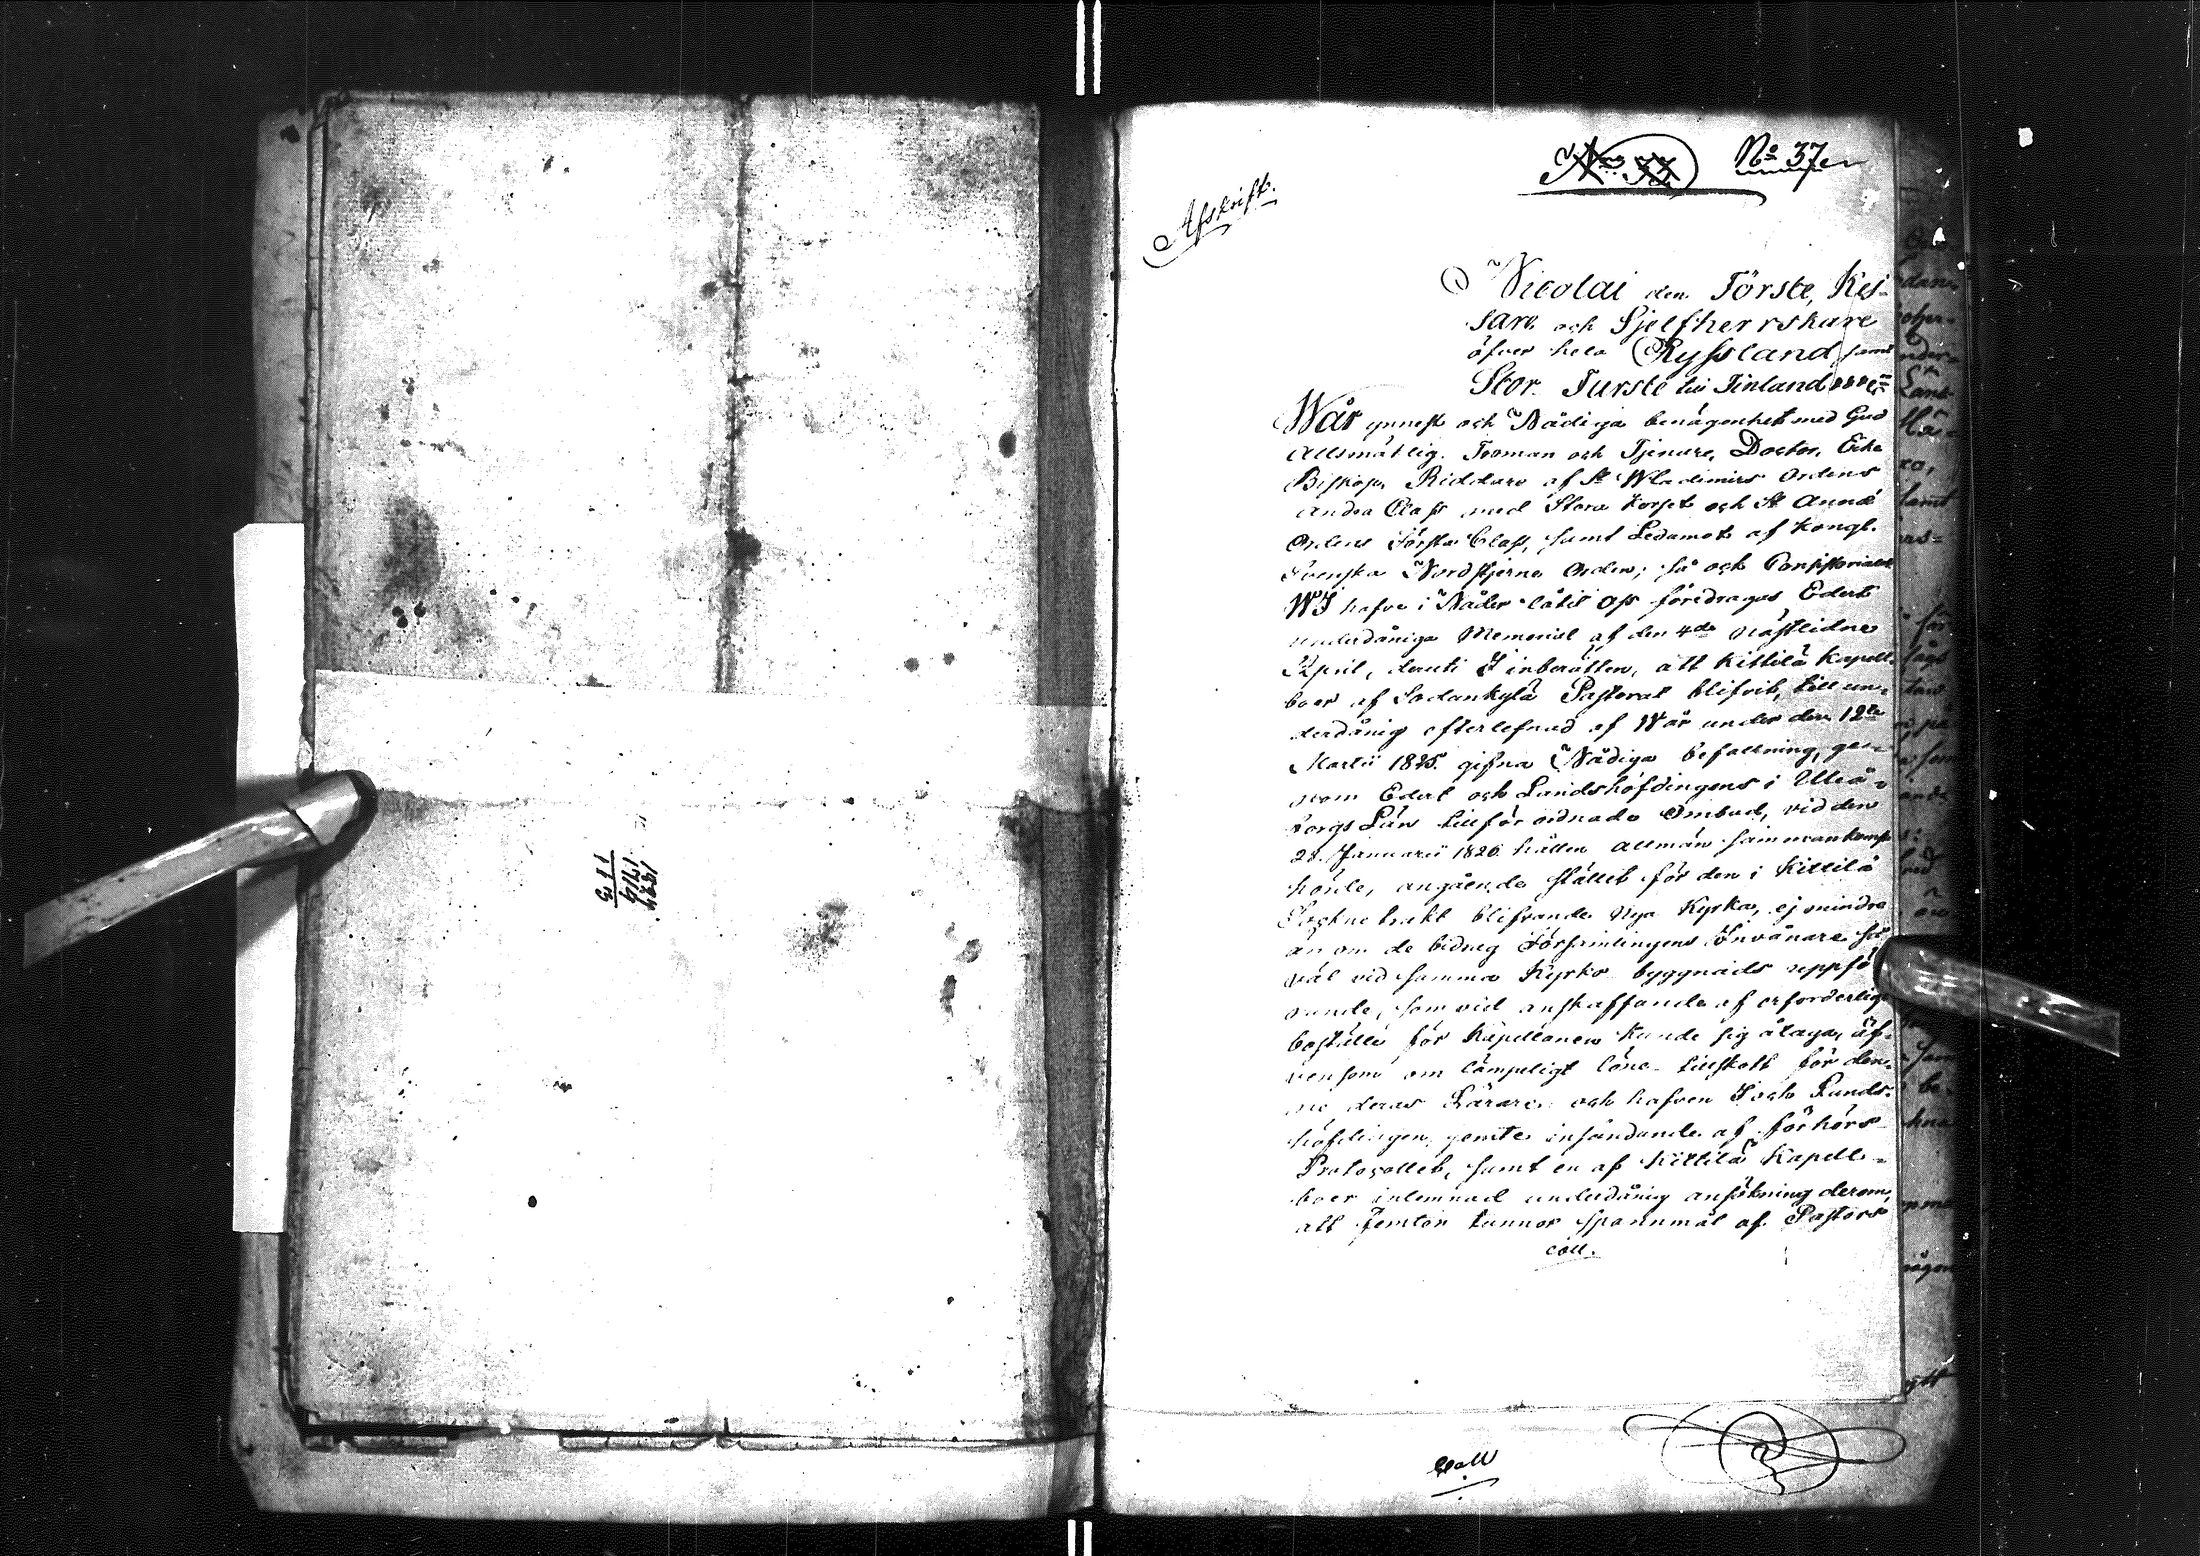 1827
1714
113
No 37
Afskrift.
Nicolai den Förste, Kej-
sare och Sjelfherrskare
öfver hela Ryssland samt
Stor Furste till Finland
Wår ynnest och Nådiga benägenhet med Gud
Allsmäktig. Troman och Tjenare, Doctor, Erke
Biskop, Riddare af St Wladimirs Ordens
andra Class med Stora Korset och St Annæ
Ordens Första Class, samt Ledamot af Kongl.
Svenska Nordstjerne Orden; så och Consistorialer
WI hafve i Nåder låtit Oss föredragas Edert
underdåniga Memorial af den 4de nästlidne
April, deruti I inberätten, att Kittilä Kapell-
boer af Sodankylä Pastorat blifvit, till un-
derdånig efterlefnad af Wår under den 12te
Martii 1825 gifna Nådiga befallning, ge-
nom Edert och Landshöfdingens i Uleå-
borgs Län tillförordnade Ombud, vid den
28 Januarii 1826 hållen allmän sammankomst
hörde, angående stället för den i Kittilä
Sockne trakt blifvande Nya Kyrka, ej mindre
än om de bidrag Församlingens Invånare så
väl vid samma Kyrko byggnads uppfö-
rande, som vid anskaffande af erforderligt
boställe för Kapellanen kunde sig åtaga, äf-
vensom om lämpeligt löne tillskott för den-
ne deras Lärare; och hafven I och Lands-
höfdingen jemte insändande af förhörs
Protocollet, samt en af Kittilä Kapell-
boer inlemnad underdånig ansökning derom,
att femton tunnor Spannmål af Pastors
coll.
Coll